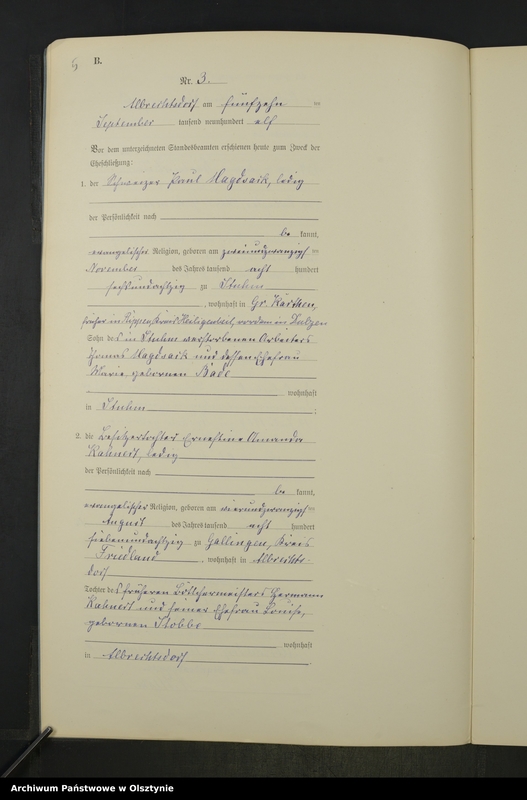 5
B.
Nr. 3.
Albrechtsdorf am fünfzehn ten
September tausend neunhundert elf
Vor dem unterzeichneten Standesbeamten erschienen heute zum Zweck der
Eheschließung:
1. der Schweizer Paul, ledig
der Persönlichkeit nach
be kannt,
evangelischer Religion, geboren am zweiundzwanzigsten
November des Jahres tausend acht hundert
sechsundachtzig zu Stuhm
, wohnhaft in Gr. Kärthen,
früher in Kreis Heiligenbeil, vordem in
Sohn des in Stuhm verstorbenen Arbeiters
Thomas und dessen Ehefrau
Marie geborenen Bade
wohnhaft
in Stuhm ;
2. die Besitzertochter Ernestine Amanda
Kuhnert, ledig
der Persönlichkeit nach
be kannt,
evangelischer Religion, geboren am vierundzwanzigsten
August des Jahres tausend acht hundert
siebenundachtzig zu Gallingen, Kreis
Friedland , wohnhaft in Albrechts-
dorf
Tochter des früheren Böttchermeisters Hermann
Kuhnert und seiner Ehefrau Louise,
geborenen Stobbe
wohnhaft
in Albrechtsdorf
Archiwum Państwowe w Olsztynie